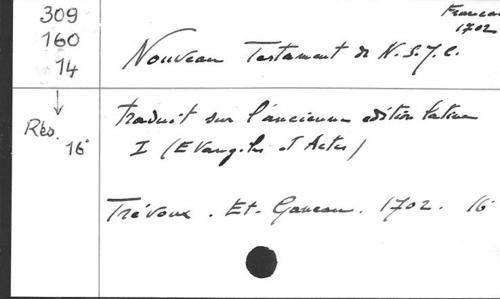 309
160
14
↓
Rés.
16°
Francais
1702
Nouveau Testament de N.S.J.C.
traduit sur l'ancienne edition latine
I (Evangiles et Actes)
Trévoux. Et. Ganeau. 1702. 16°